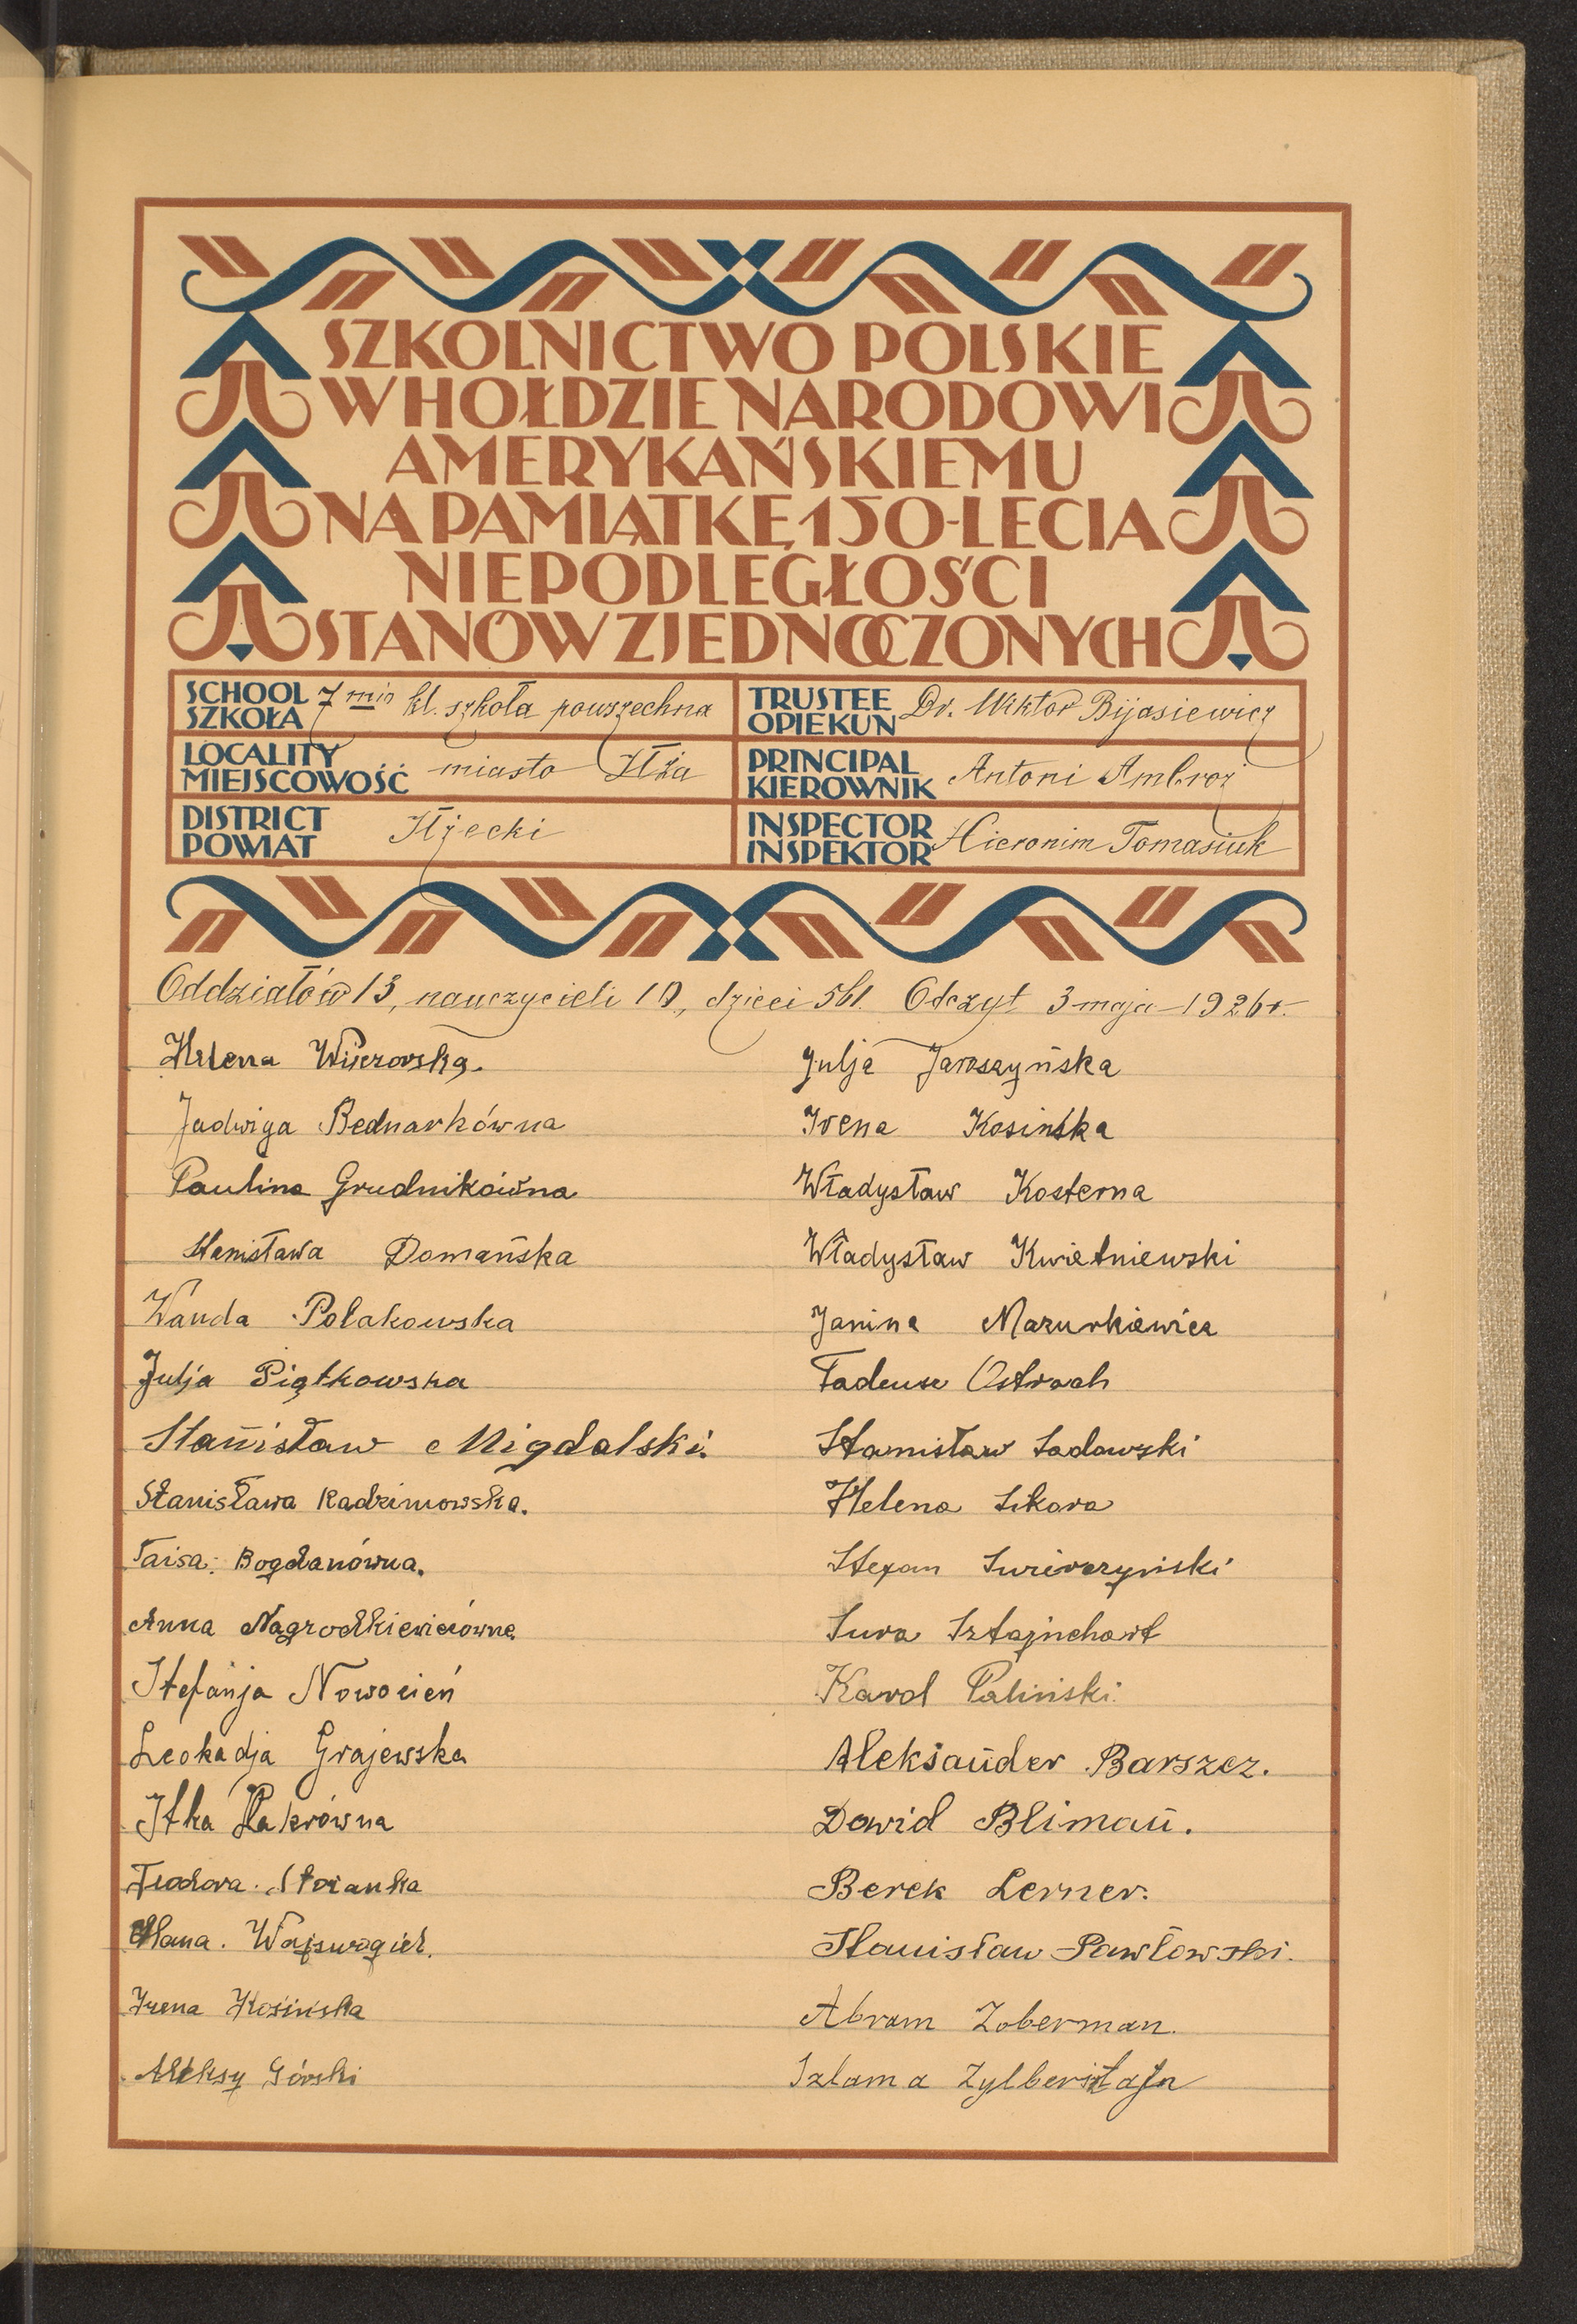 SZKOLNICTWO POLSKIE
W HOŁDZIE NARODOWI
AMERYKAŃSKIEMU
NA PAMIĄTKĘ 150-LECIA
NIEPODLEGŁOŚCI
STANÓW ZJEDNOCZONYCH
SCHOOL SZKOŁA 7 mio kl. szkoła powszechna
TRUSTEE OPIEKUN Dr. Wiktor Bijasiewicz
LOCALITY MIEJSCOWOŚĆ miasto Iłża
PRINCIPAL KIEROWNIK Antoni Ambroż
DISTRICT POWIAT Iłżecki
INSPECTOR INSPEKTOR Hieronim Tomasiuk
Oddziałów 13, nauczycieli 10, dzieci 561. Odczyt 3 maja 1926 r.
Helena
Jadwiga Bednarkówna
Paulina Grudnikówna
Stanisława Domańska
Wanda Polakowska
Julja Piątkowska
Stanisław Migdalski.
Stanisława Radzimowska.
Taisa. Bogdanówna.
Anna Nagrodkiewiczówna
Stefanja Nowocień
Leokadja Grajewska
Itka
Teodora.
Hana. Wajswogiel.
Irena Kosińska
Aleksy Górski
Julja Jaroszyńska
Irena Kosińska
Władysław Kosterna
Władysław Kwietniewski
Janina Mazurkiewicz
Tadeusz Ostrach
Stanisław Sadowski
Helena Sikora
Stefan
Sura Sztajnchart
Karol Paliński.
Aleksander Barszcz.
Dawid Bliman.
Berek Lerner.
Stanisław Pawłowski.
Abram Zoberman.
Szlama Zylbersztajn